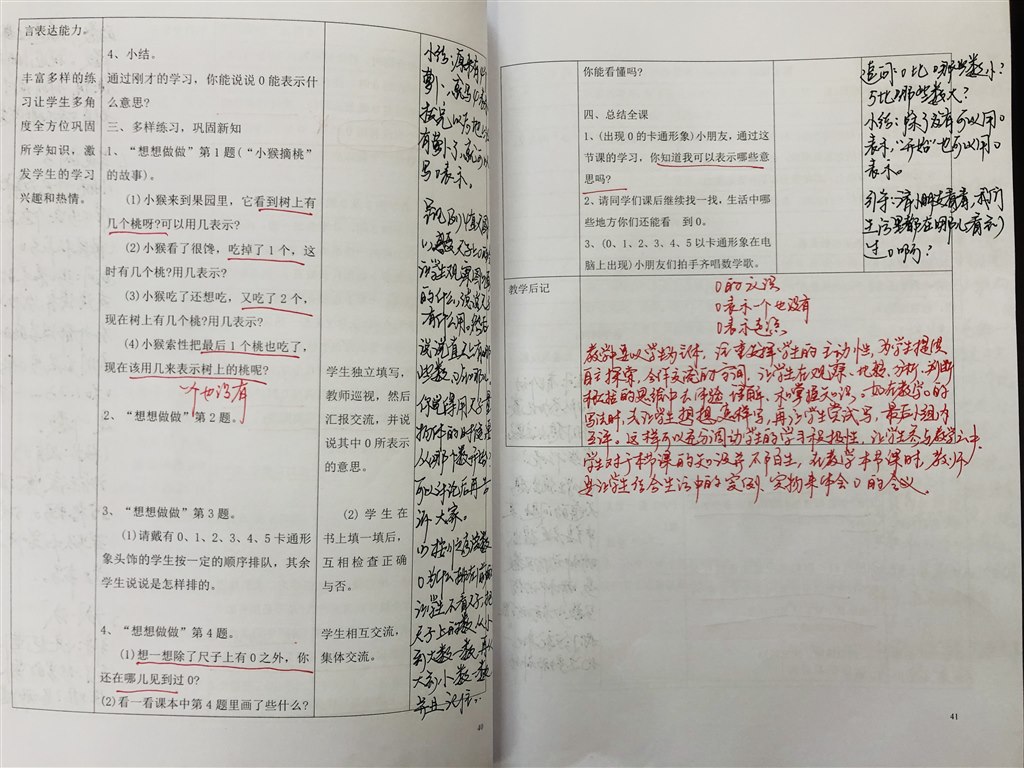 言表达能力。
丰富多样的练
习让学生多角
度全方位巩固
所学知识，激
发学生的学习
兴趣和热情。
4、小结。
通过刚才的学习，你能说说 0 能表示什
么意思?
三、多样练习，巩固新知
1、“想想做做”第 1 题(“小猴摘桃”
的故事)。
(1)小猴来到果园里，它看到树上有
几个桃呀?可以用几表示?
(2)小猴看了很馋，吃掉了 1 个，这
时有几个桃?用几表示?
(3)小猴吃了还想吃，又吃了 2 个，
现在树上有几个桃?用几表示?
(4)小猴索性把最后 1 个桃也吃了，
现在该用几来表示树上的桃呢?
一个也没有
2、“想想做做”第 2 题。
3、“想想做做”第 3 题。
(1)请戴有 0、1、2、3、4、5 卡通形
象头饰的学生按一定的顺序排队，其余
学生说说是怎样排的。
4、“想想做做”第 4 题。
(1)想一想除了尺子上有 0 之外，你
还在哪儿见到过 0?
(2)看一看课本中第 4 题里画了些什么?
学生独立填写，
教师巡视，然后
汇报交流，并说
说其中 0 所表示
的意思。
(2) 学生在
书上填一填后，
互相检查正确
与否。
学生相互交流，
集体交流。
小结：原来有
萝卜，
写0表示。
让学生观察
的什么，
有什么用。然后
说说直尺上有哪
些数，0在哪儿。
你觉得用尺子量
物体的时候是
从哪个数开始?
可以讨论后再告
诉大家。
0为什么排在1前面
让学生不看尺子，把
尺子上的数从小
到大数一数，再从
大到小数一数
并且记住。
40
你能看懂吗?
四、总结全课
1、(出现 0 的卡通形象)小朋友，通过这
节课的学习，你知道我可以表示哪些意
思吗?
2、请同学们课后继续找一找，生活中哪
些地方你们还能看 到 0。
3、(0、1、2、3、4、5 以卡通形象在电
脑上出现)小朋友们拍手齐唱数学歌。
追问：0比哪些数小?
5比哪些数大?
小结：除了没有可以用0
表示，“开始”也可以用0
表示。
引导：请小朋友看看，我们
生活里都在哪儿看到
过0啊?
教学后记
0的认识
0表示一个也没有
0表示起点
教学要以学生为主体，注重发挥学生的主动性，为学生提供
自主探索，合作交流的空间，让学生在观察、比较、分析、判断
积极的思维中去体验、理解、和掌握知识。如在教学0的
写法时，先让学生想想怎样写，再让学生尝试写，最后小组内
互评。这样可以充分调动学生的学习积极性，让学生参与教学之中。
学生对于本节课的知识并不陌生，在教学本节课时，教师
要让学生结合生活中的实例、实物来体会0的含义。
41